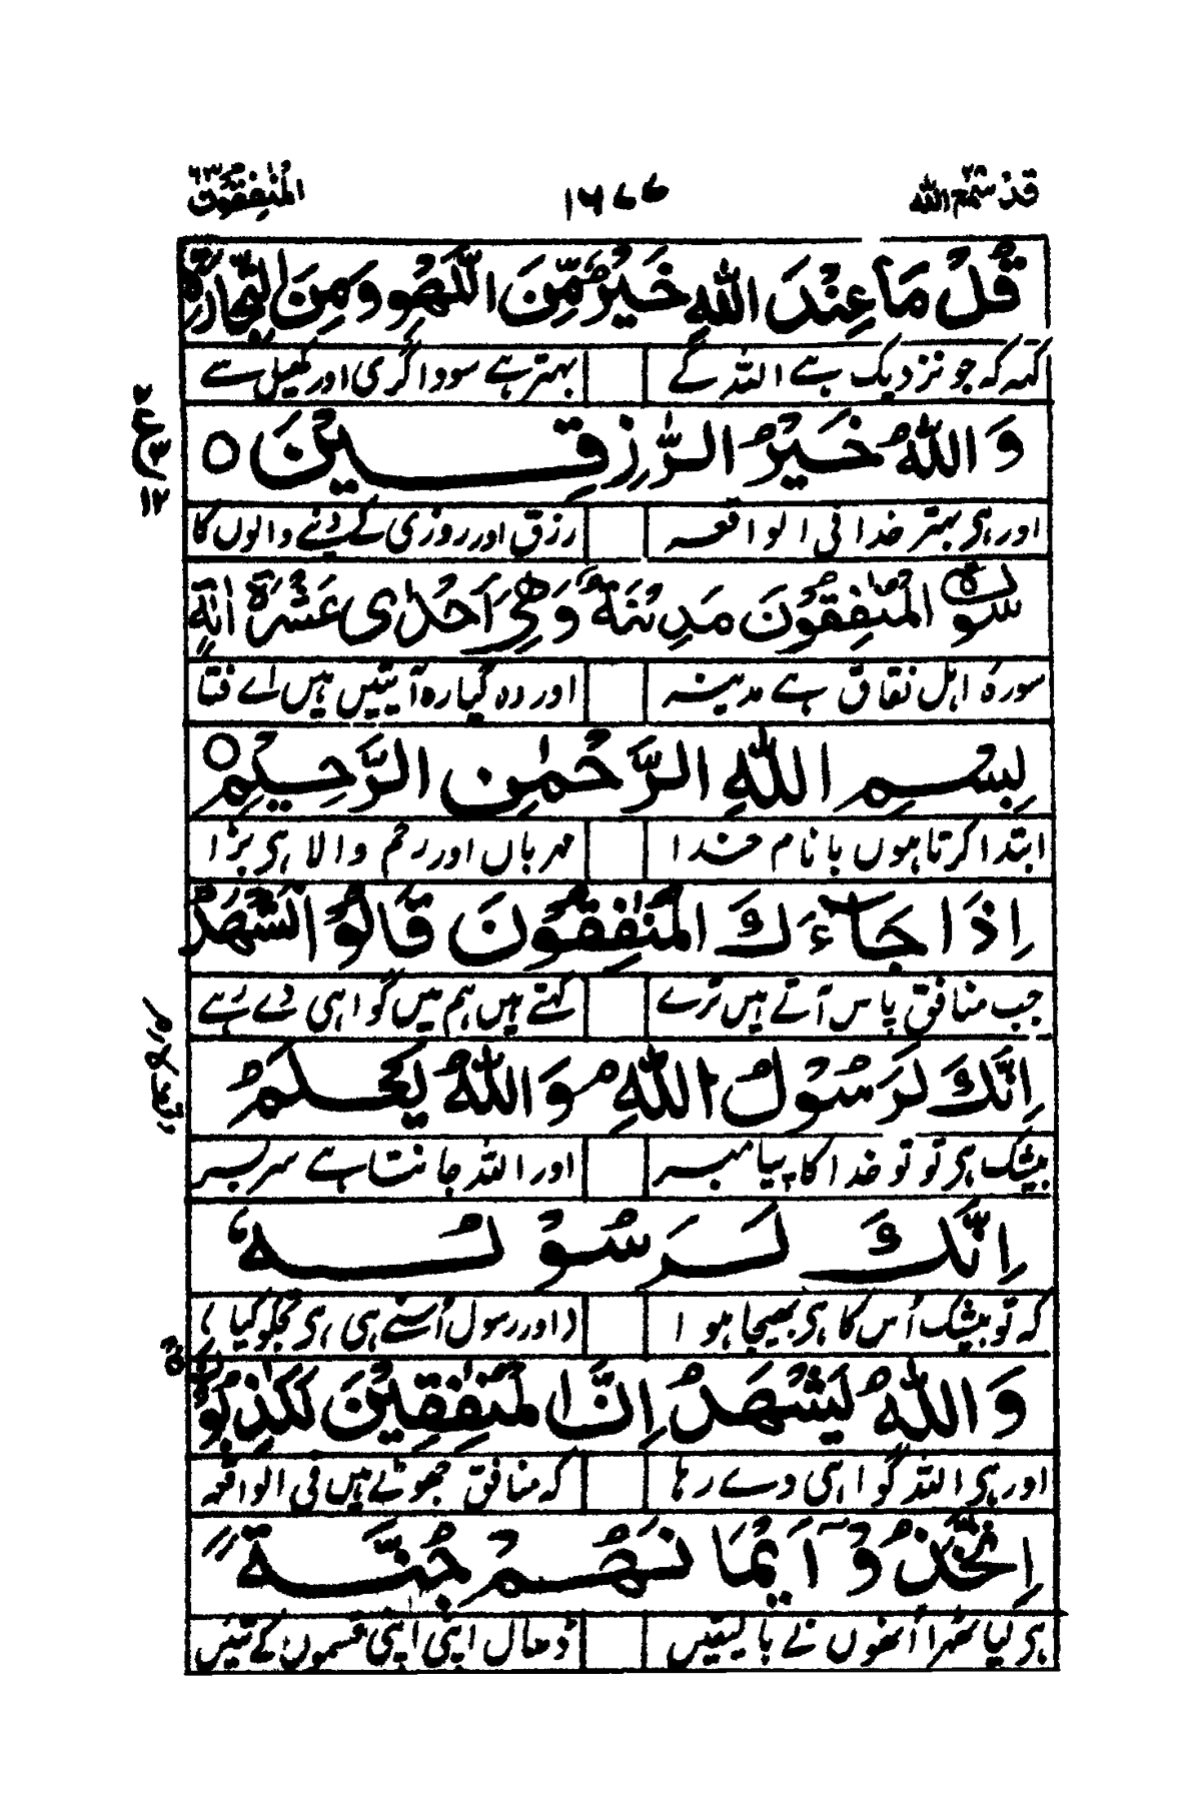 قد سمع الله ٢٨ ١٦٧٧ المنفقون ٦٣
قُلْ مَا عِنْدَ اللّٰهِ خَيْرٌ مِّنَ اللَّهْوِ وَمِنَ التِّجَارَةِ
کہہ کہ جو نزدیک ہے اللہ کے بہتر ہے سوداگری اور کھیل سے
وَاللّٰهُ خَيْرُ الرّٰزِقِيْنَ ○
اور ہی بہتر خدا فی الواقعہ رزق اور روزی کے دینے والوں کا
سورة الْمُنٰفِقُوْنَ مَدِيْنَةٌ وَّهِيَ اَحْدٰى عَشْرَةَ اٰيَةً
سورہ اہل نفاق ہے مدینہ اور وہ گیارہ آیتیں ہیں اے فتا
بِسْمِ اللّٰهِ الرَّحْمٰنِ الرَّحِيْمِ ○
ابتدا کرتا ہوں با نام خدا مہرباں اور رحم والا ہی بڑا
اِذَا جَآءَكَ الْمُنٰفِقُوْنَ قَالُوْا نَشْهَدُ
جب منافق پاس آتے ہیں ترے کہتے ہیں ہم ہیں گواہی دے رہے
اِنَّكَ لَرَسُوْلُ اللّٰهِ ۘ وَاللّٰهُ يَعْلَمُ
بیشک ہی تو تو خدا کا پیامبر اور اللہ جانتا ہے سربسر
اِنَّكَ لَرَسُوْلُهٗ
کہ تو بیشک اُس کا ہی بھیجا ہوا (اور رسول اُسنے ہی ہی تجکو کیا)
وَاللّٰهُ يَشْهَدُ اِنَّ الْمُنٰفِقِيْنَ لَكٰذِبُوْنَ
اور ہی اللہ گواہی دے رہا کہ منافق جھوٹے ہیں فی الواقعہ
اِتَّخَذُوْٓا اَيْمَانَهُمْ جُنَّةً
ہی لیا ٹھہرا اُنھوں نے بالیقیں ڈھال اپنی اپنی قسموں کے تئیں